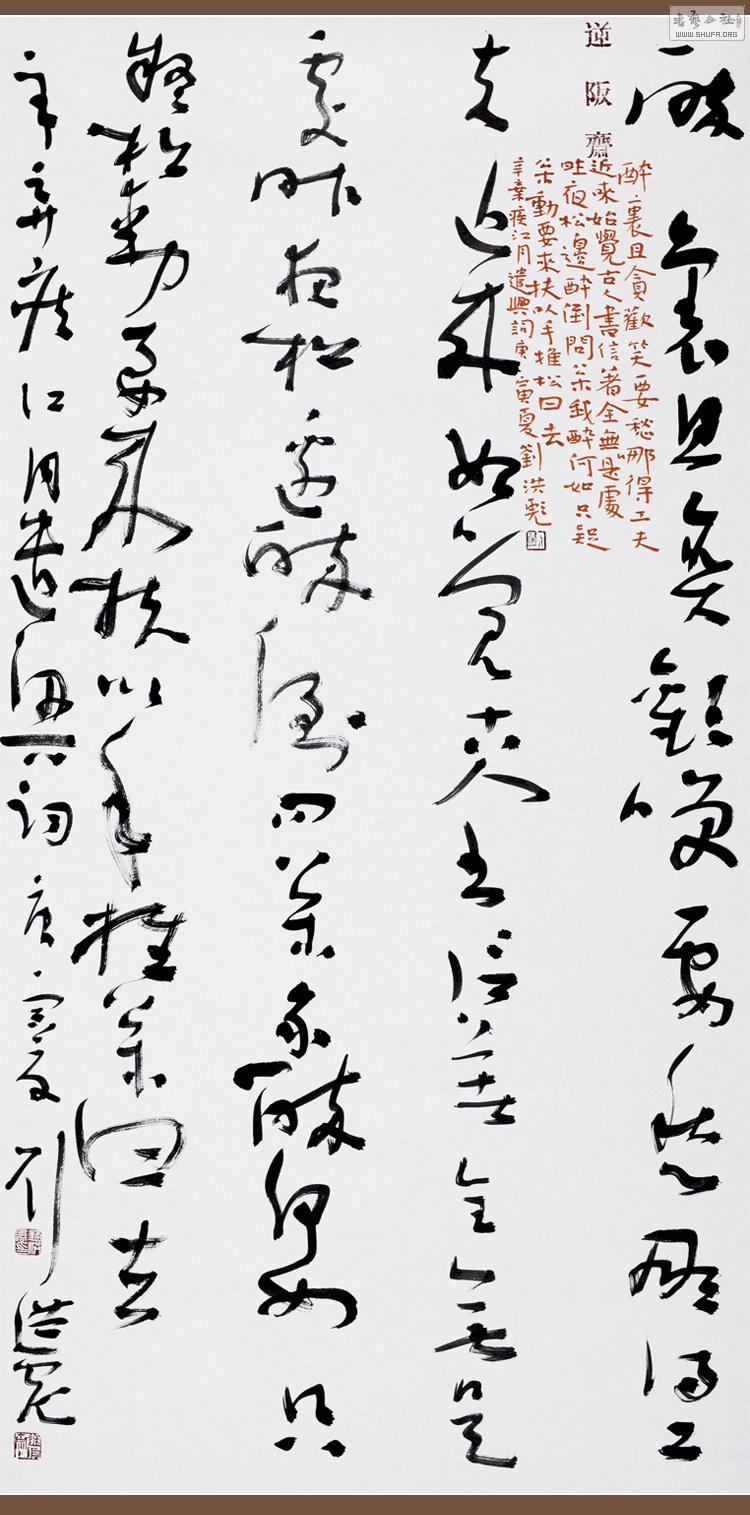 书艺公社
WWW.SHUFA.ORG
醉裏且貪歡笑要愁哪得工
夫近來始覺古人書信著全無是
處昨夜松邊醉倒問枀我醉何如只
疑松動要來扶以手推枀曰去
辛棄疾江月遣興詞庚寅夏劉洪彪
逆阪齋
醉裏且貪歡笑要愁哪得工夫
近來始覺古人書信著全無是處
昨夜松邊醉倒問枀我醉何如只疑
枀動要來扶以手推松曰去
辛棄疾江月遣興詞庚寅夏劉洪彪